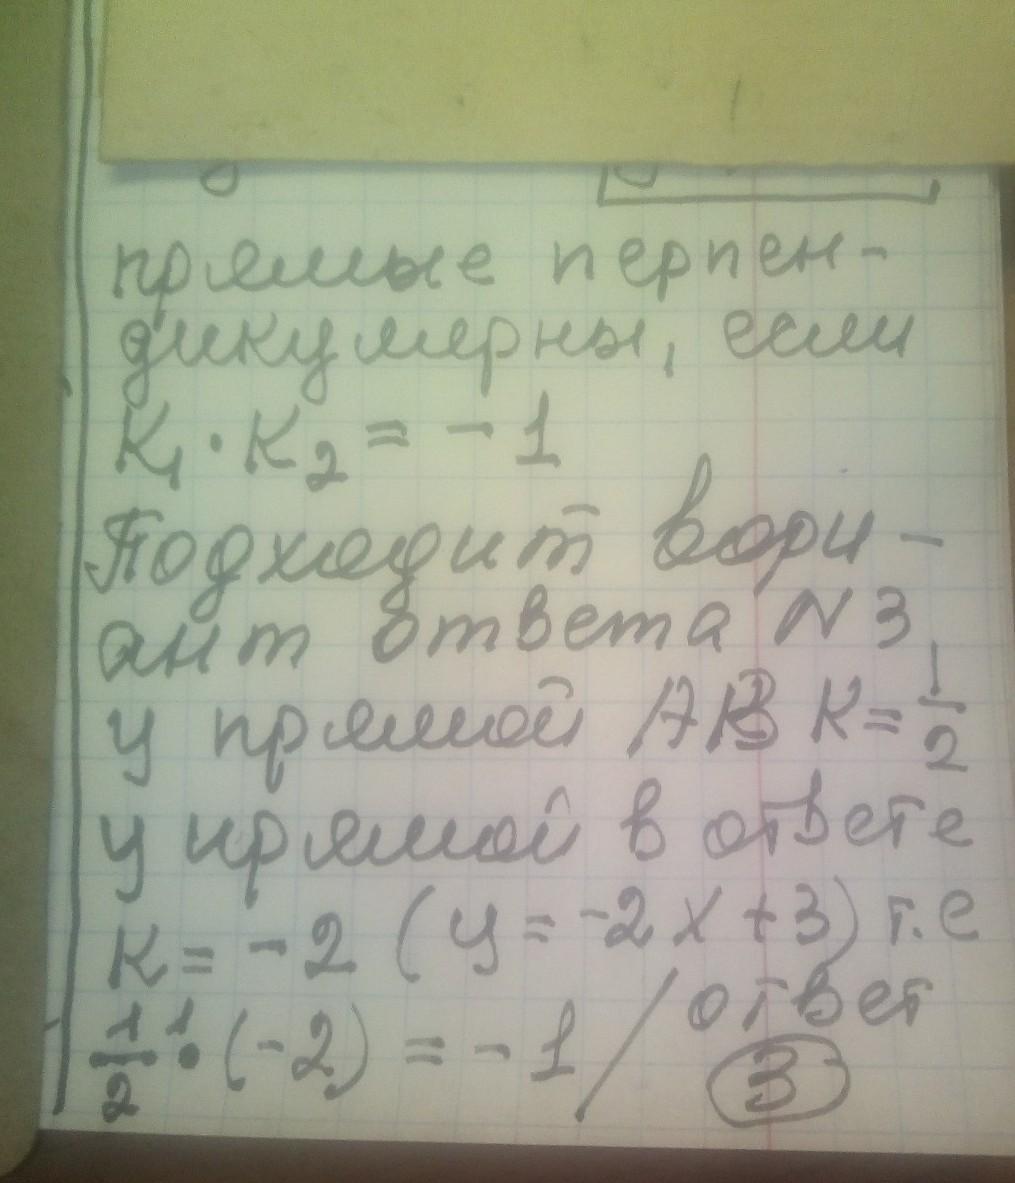 прямые перпен-
дикулярны, если
K₁ · K₂ = -1
Подходит вари-
ант ответа N 3
у прямой АВ K = 1/2
у прямой в ответе
K = -2 (y = -2x + 3) т.е
1/2 · (-2) = -1 / ответ
3